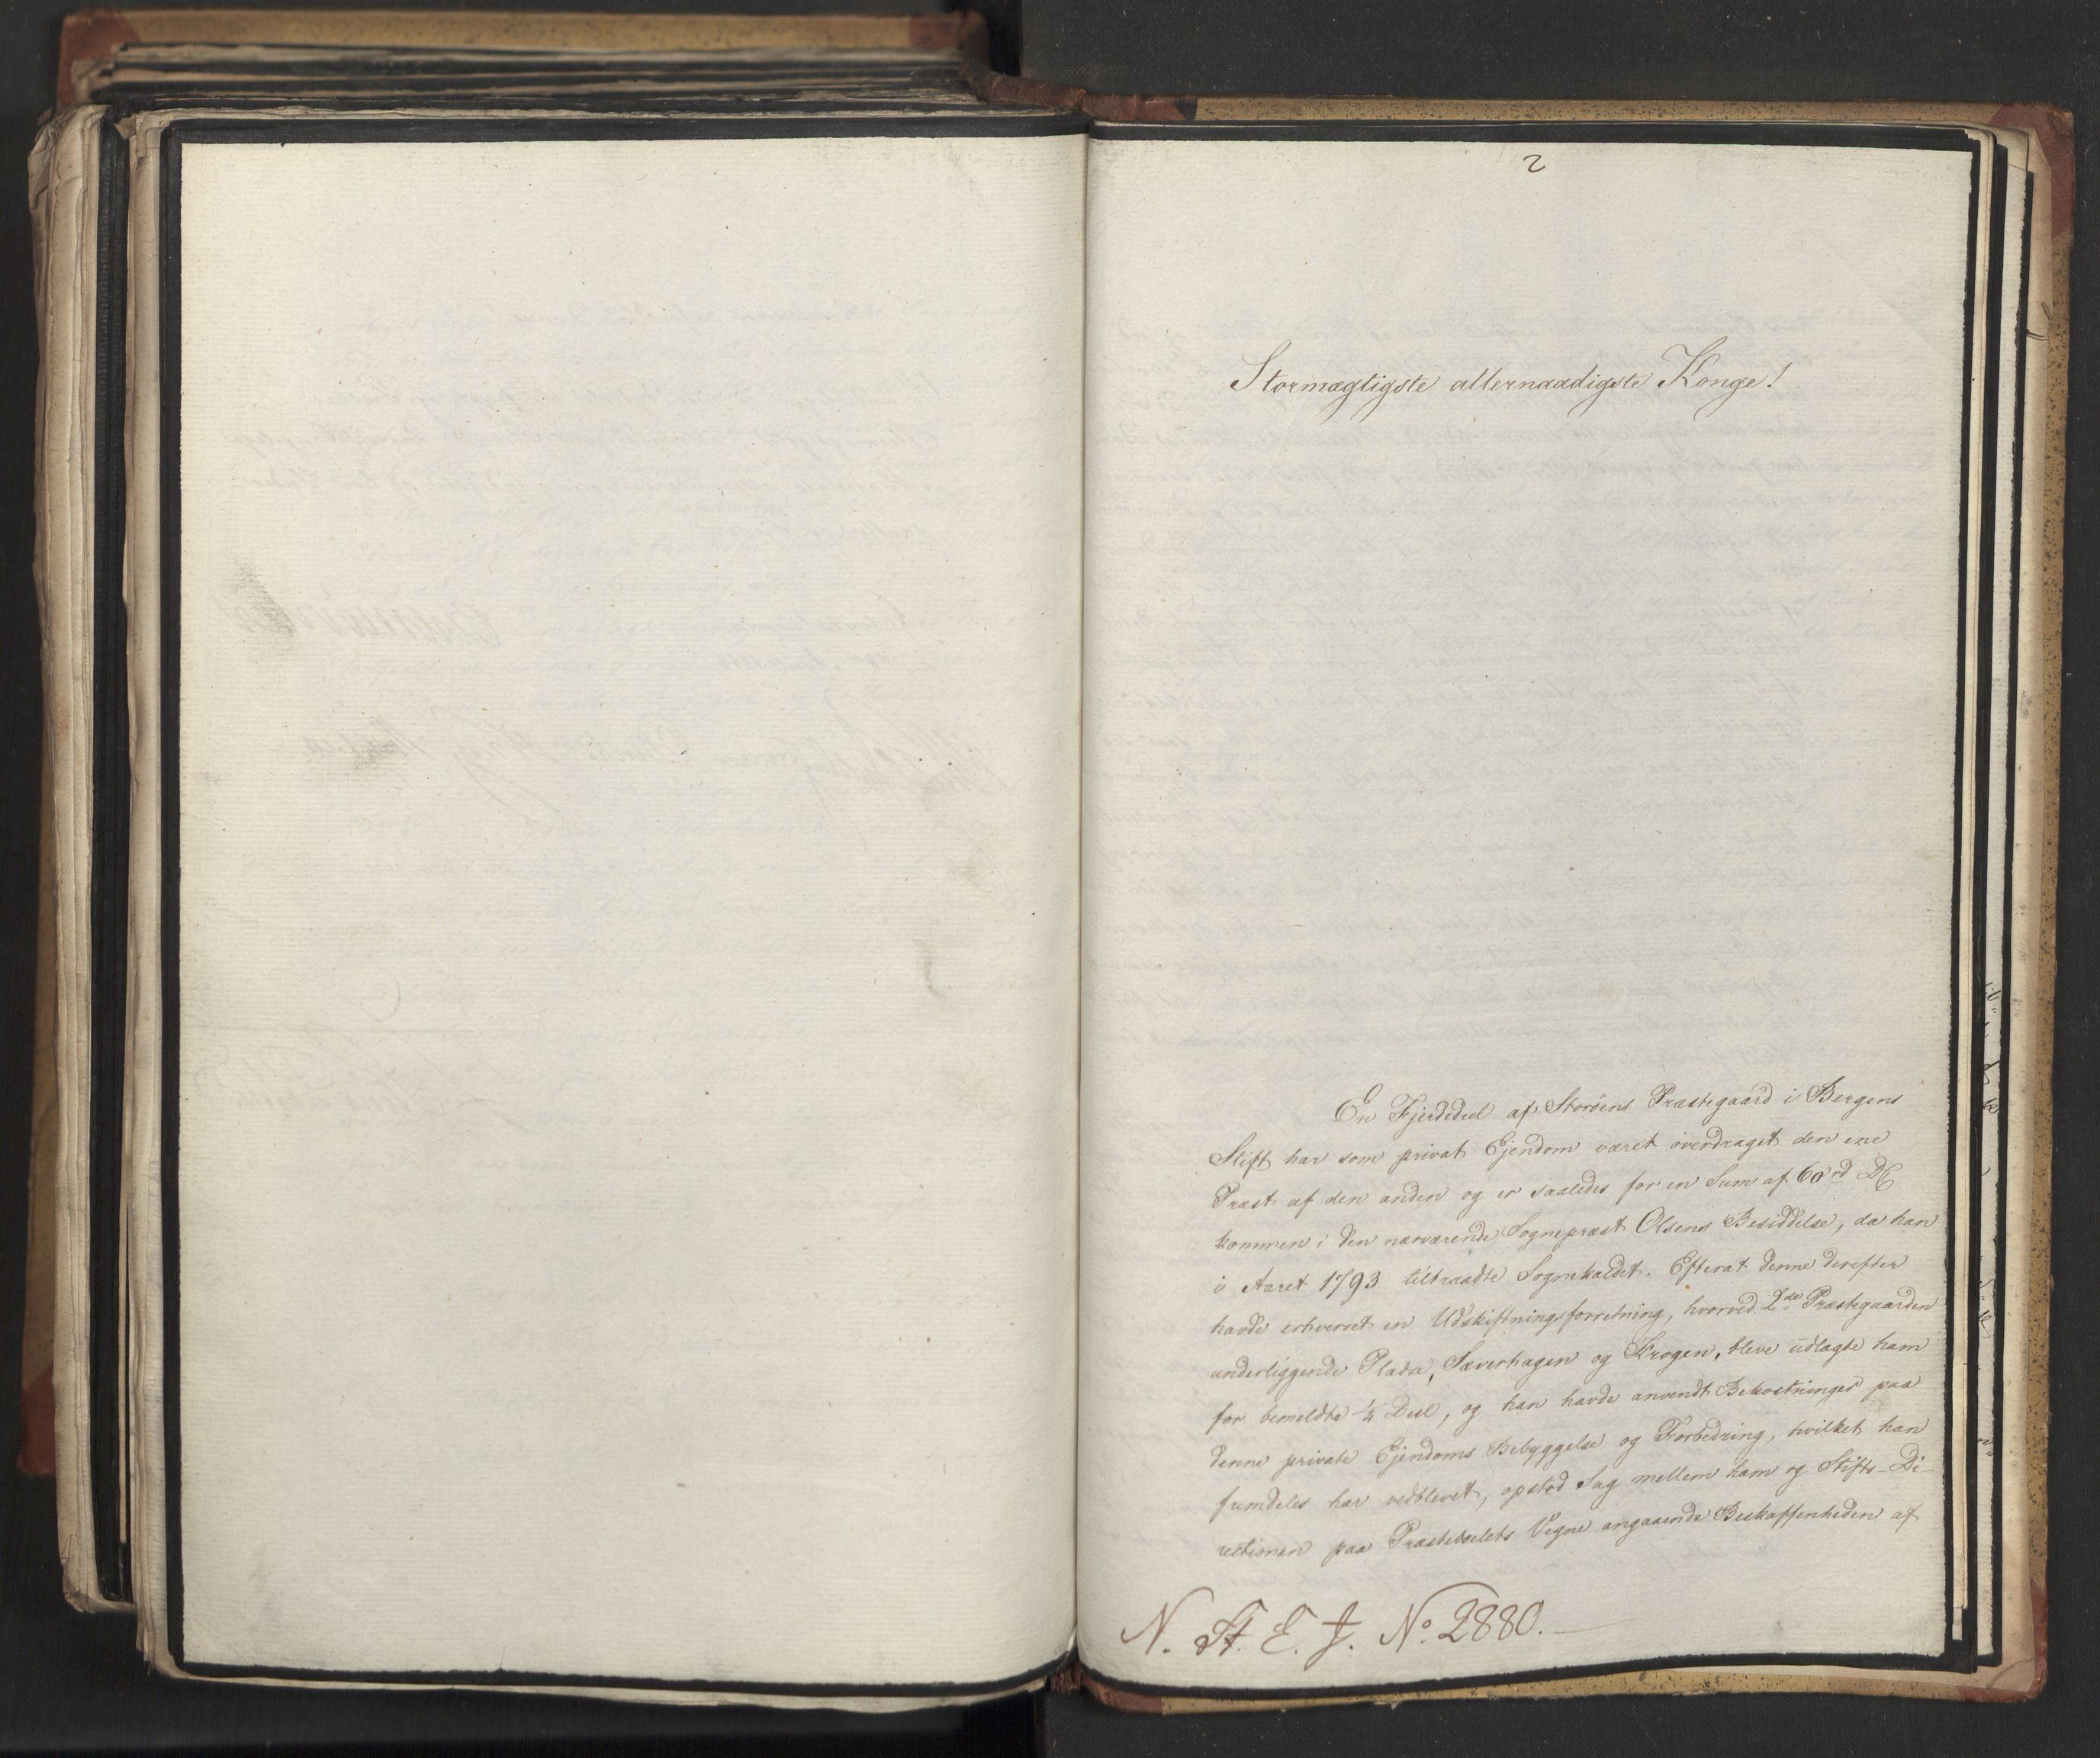 2
Stormægtigste allernaadigste Konge!
En Fjerdedeel af Storöens Præstegaard i Bergens
Stift har som privat Ejendom været overdraget den ene
Præst af den anden og er saaledes for en Sum af 60 rd DC
kommen i den nærværende Sognepræst Olsens Besiddelse, da han
i Aaret 1793 tiltraadte Sognekaldet. Efterat denne derefter
havde erhvervet en Udskiftningsforretning, hvorved 2de Præstegaarden
underliggende Pladse, Sæverhagen og Krogen, bleve udlagte ham
for bemeldte ¼ Deel, og han havde anvendt Bekostninger paa
denne private Ejendoms Bebyggelse og Forbedring, hvilket han
fremdeles har vedblevet, opstod Sag mellem ham og Stifts-Di-
rectionen paa Præstebolets Vegne angaaende Beskaffenheden af
N. St. E. J. No. 2880.